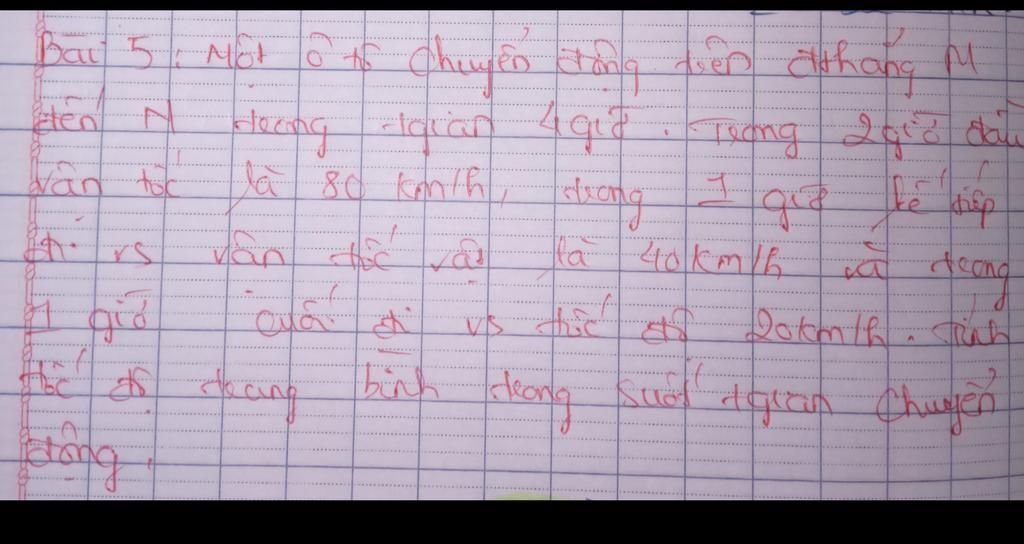 Bài 5: Một ô tô chuyển động trên đthẳng M
đến N trong tgian 4giờ. Trong 2giờ đầu
vận tốc là 80 km/h, trong 1 giờ kế tiếp
đi vs vận tốc là 40km/h và trong
1 giờ cuối đi vs tốc độ 20km/h. Tính
tốc độ trung bình trong suốt tgian chuyển
động.